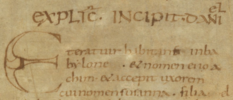 EXPLIC̄. INCIPIT. DANI
EL
Et erat uir habitans in ba
bylone. & nomen eius ioa
chim & accepit uxorem
nomine susanna. filia